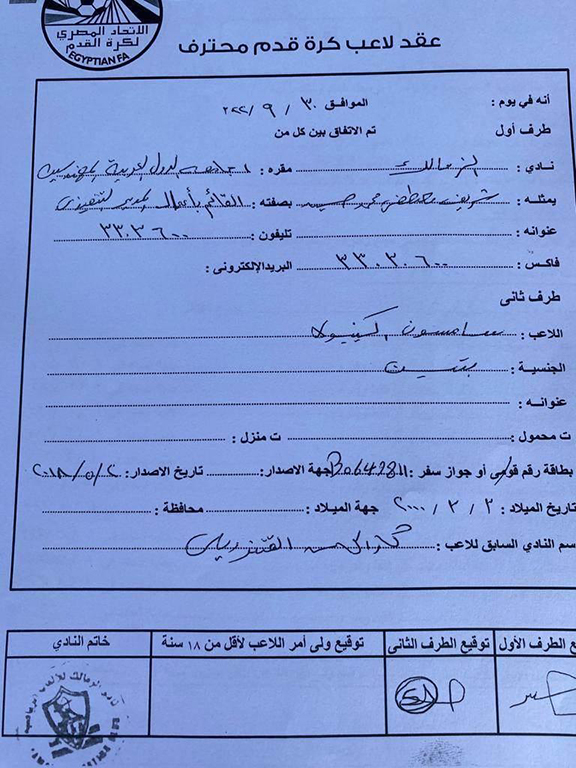 الاتحاد المصري
لكرة القدم
EGYPTIAN FA
عقد لاعب كرة قدم محترف
أنه في يوم : الموافق ٣٠ / ٩ /
طرف أول تم الاتفاق بين كل من
نادي : الزمالك مقره : الدول العربية المهندسين
يمثله : شريف مصطفى محمد بصفته : القائم بأعمال المدير التنفيذى
عنوانه : تليفون : ٣٣٠٣٦٠٠
فاكس : ٣٣٠٣٠٦٠٠ البريد الإلكترونى :
طرف ثانى
اللاعب : سامسون اكينيولا
الجنسية :
عنوانه :
ت محمول : ت منزل :
بطاقة رقم قومى أو جواز سفر : جهة الاصدار : تاريخ الاصدار :
تاريخ الميلاد : ٢ / ٣ / ٢٠٠٠ جهة الميلاد : محافظة :
سم النادى السابق للاعب :
ع الطرف الأول توقيع الطرف الثانى توقيع ولى أمر اللاعب لأقل من ١٨ سنة خاتم النادي
نادي الزمالك للألعاب الرياضية